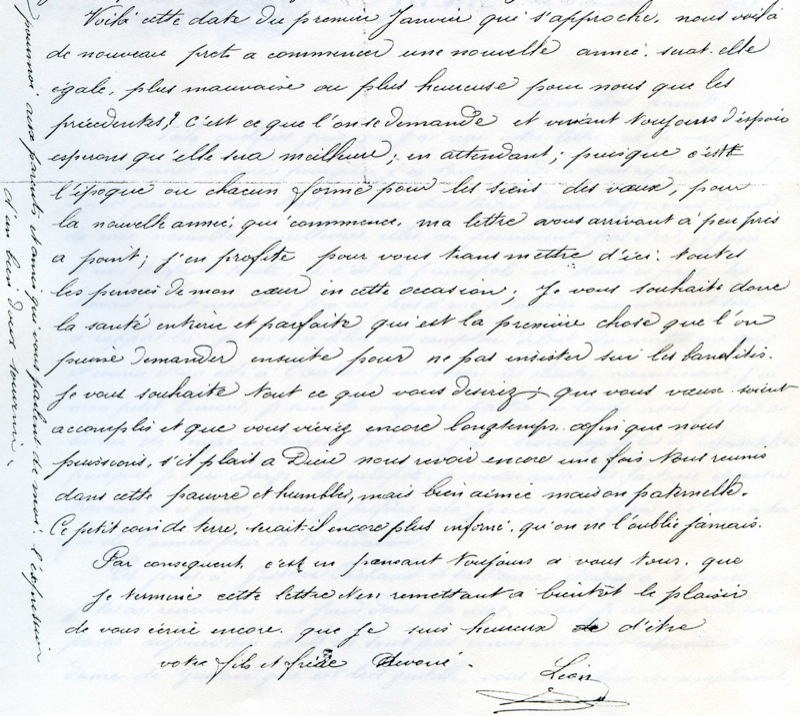 Voilà cette date du premier Janvier qui s'approche, nous voilà
de nouveau prets a commencer une nouvelle année. serat-elle
égale, plus mauvaise ou plus heureuse pour nous que les
précedentes,? C'est ce que l'on se demande et vivant toujours d'espoir
esperons qu'elle sera meilleure; en attendant; puisque c'est
l'époque ou chacun forme pour les siens des vœux, pour
la nouvelle année, qui commence, ma lettre vous arrivant a peu près
a point; j'en profite pour vous transmettre d'ici toutes
les pensées de mon cœur en cette occasion; Je vous souhaite donc
la santé entière et parfaite qui est la première chose que l'on
puisse demander ensuite pour ne pas insister sur les banalités.
Je vous souhaite tout ce que vous desirez, que vous vœux soient
accomplis et que vous viviez encore longtemps. afin que nous
puissions, s'il plait a Dieu nous revoir encore une fois tous reunis
dans cette pauvre et humbles, mais bien aimée maison paternelle.
Ce petit coin de terre, serait il encore plus infime, qu'on ne l'oublie jamais.
Par consequent, c'est en pensant toujours a vous tous, que
je termine cette lettre et en remettant a bientôt le plaisir
de vous écrire encore. que Je suis heureux de d'être
votre fils et frère devoué.
Léon
aux parents, et amis qui vous parlent de moi. l'expression
d'un bien doux